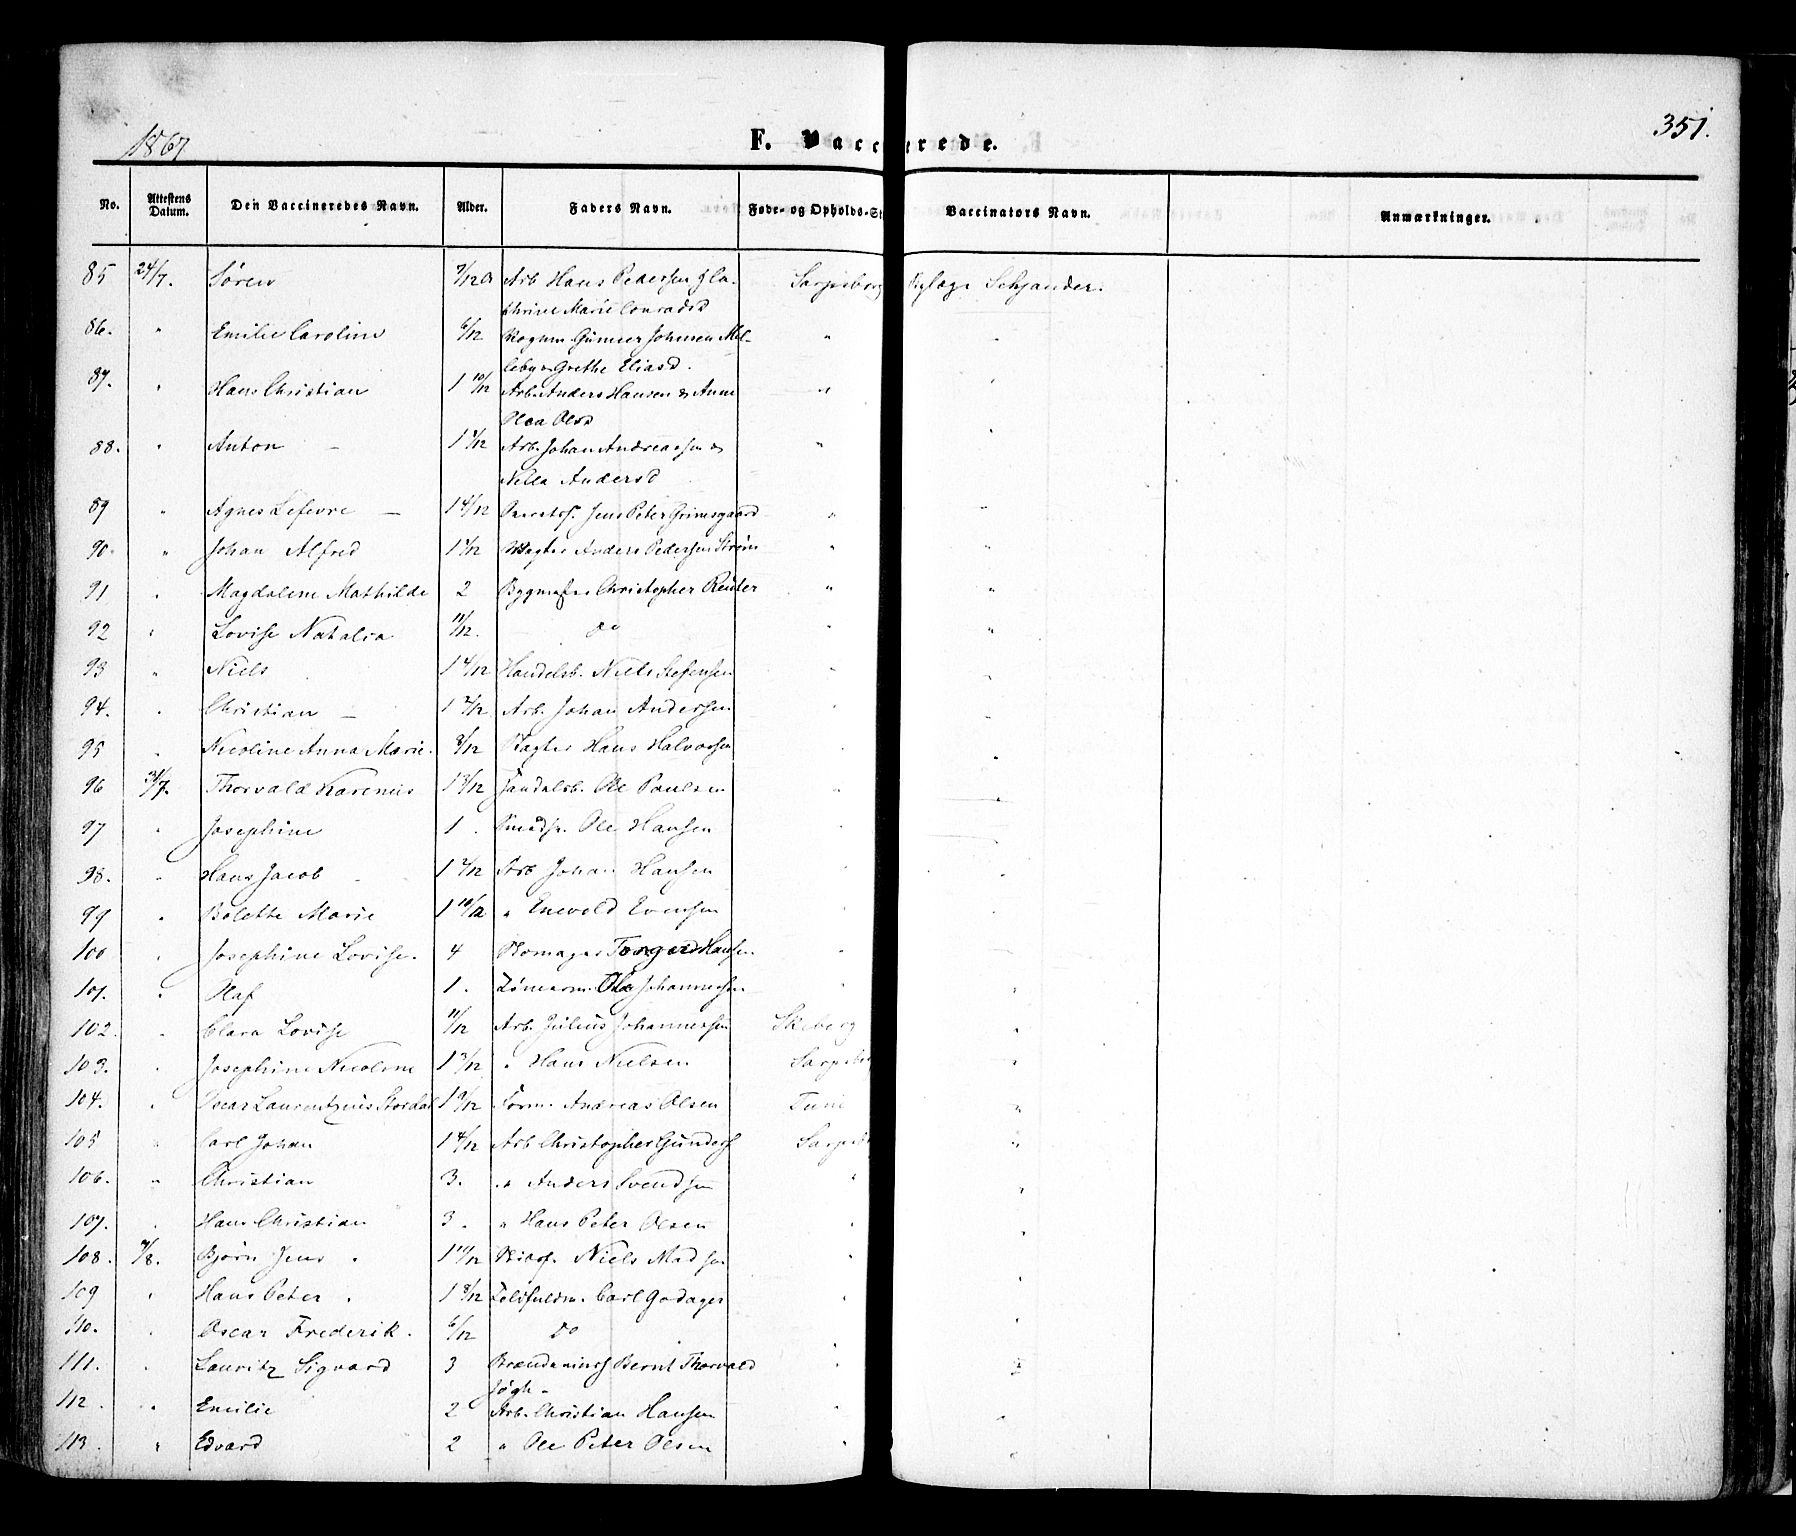 1867
F. Vaccinerede.
351.
No. Attestens Datum. Den Vaccineredes Navn. Alder. Faders Navn. Føde- og Opholds-St Vaccinators Navn. Anmærkninger.
85 24/7. Sören 7/12 Arb Hans Pedersen Sarpsborg Schjander.
thrine Marie Conradsd
86. " Emilie Caroline 6/12 Gunner Johnsen Mel- "
leby & Grethe Eliasd.
87. " Hans Christian 1 10/12 Arb. Anders Hansen & Anne "
Olea Olsd
88. " Anton 1 Arb. Johan Andreassen & "
Andersd
89 " Agnes Lefevre 1 4/12 Jens Peter Grimsgaard "
90. " Johan Alfred 1 Anders Pedersen Ström "
91 " Magdalene Mathilde 2 Bygmester Christopher Reuter "
92 " Lovise Natalia 11/12. do "
93 " Niels 1 4/12 Handelsb. Niels Stefensen "
94. " Christian 1 Arb. Johan Andersen
95 " Nicoline Anna Marie. 8/12 Hans Halvorsen
96 31/7. Thorvald Karenius 1 Handelsb. Ole Paulsen "
97 " Josephine 1. Ole Hansen "
98. " Hans Jacob 1 2/12 Arb Johan Hansen "
99 " Bolette Marie 1 10/12 " Enevold Evensen "
100 " Josephine Lovise. 4 Skomager Hansen "
101. " Olaf 1. Tömmerm. Ole Johannessen "
102. " Clara Lovise 11/12 Arb. Julius Johannessen Skeberg "
103. " Josephine Nicoline 1 3/12 " Hans Nielsen Sarpsborg "
104. " Oscar Laurentzius Stordal 1 9/12 Form. Andreas Olsen Tune "
105 " Carl Johan 1 4/12 Arb Christopher Gunders Sarpsb "
106. " Christian 3. " Anders Svendsen " "
107. " Hans Christian 3. " Hans Peter Olsen "
108. 7/8. Björn Jens 1 Niels Madsen "
109 " Hans Peter 1 8/12 Carl Godager "
110. " Oscar Frederik. 6/12 do "
111. " Lauritz Sigvard 3 Bernt Thorvald "
112 " Emilie 2 Arb. Christian Hansen "
113. " Edvard 2 " Ole Peter Olsen "